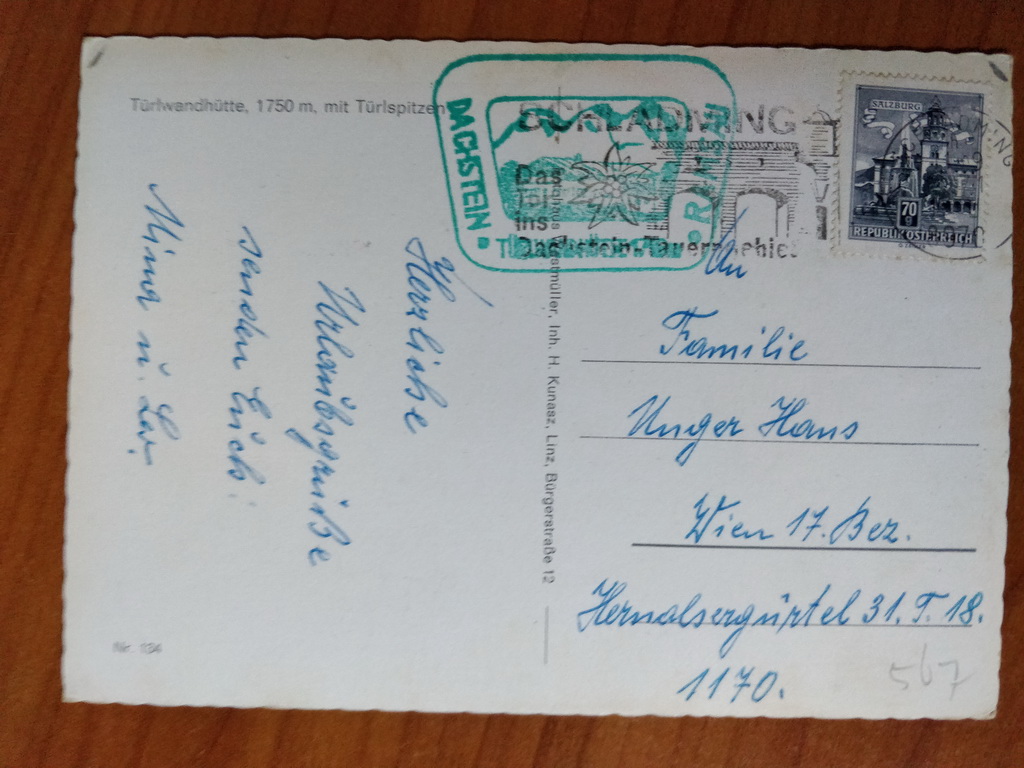 Türlwandhütte, 1750 m, mit Türlspitzen
Herzliche
Urlaubsgrüße
senden Euch
Mima u.
DACHSTEIN
SCHLADMING
Das
Tor
ins
Dachstein-Tauerngebiet
SALZBURG
70
REPUBLIK ÖSTERREICH
Inh. H. Kunasz, Linz, Bürgerstraße 12
An
Familie
Unger Hans
Wien 17. Bez.
Hernalsergürtel 31. T. 18.
1170.
567
Nr. 134